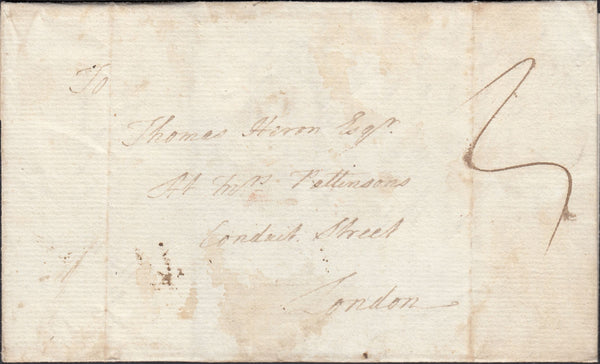 To
Thomas Heron Esqr.
At Mrs Pattinsons
Conduit Street
London